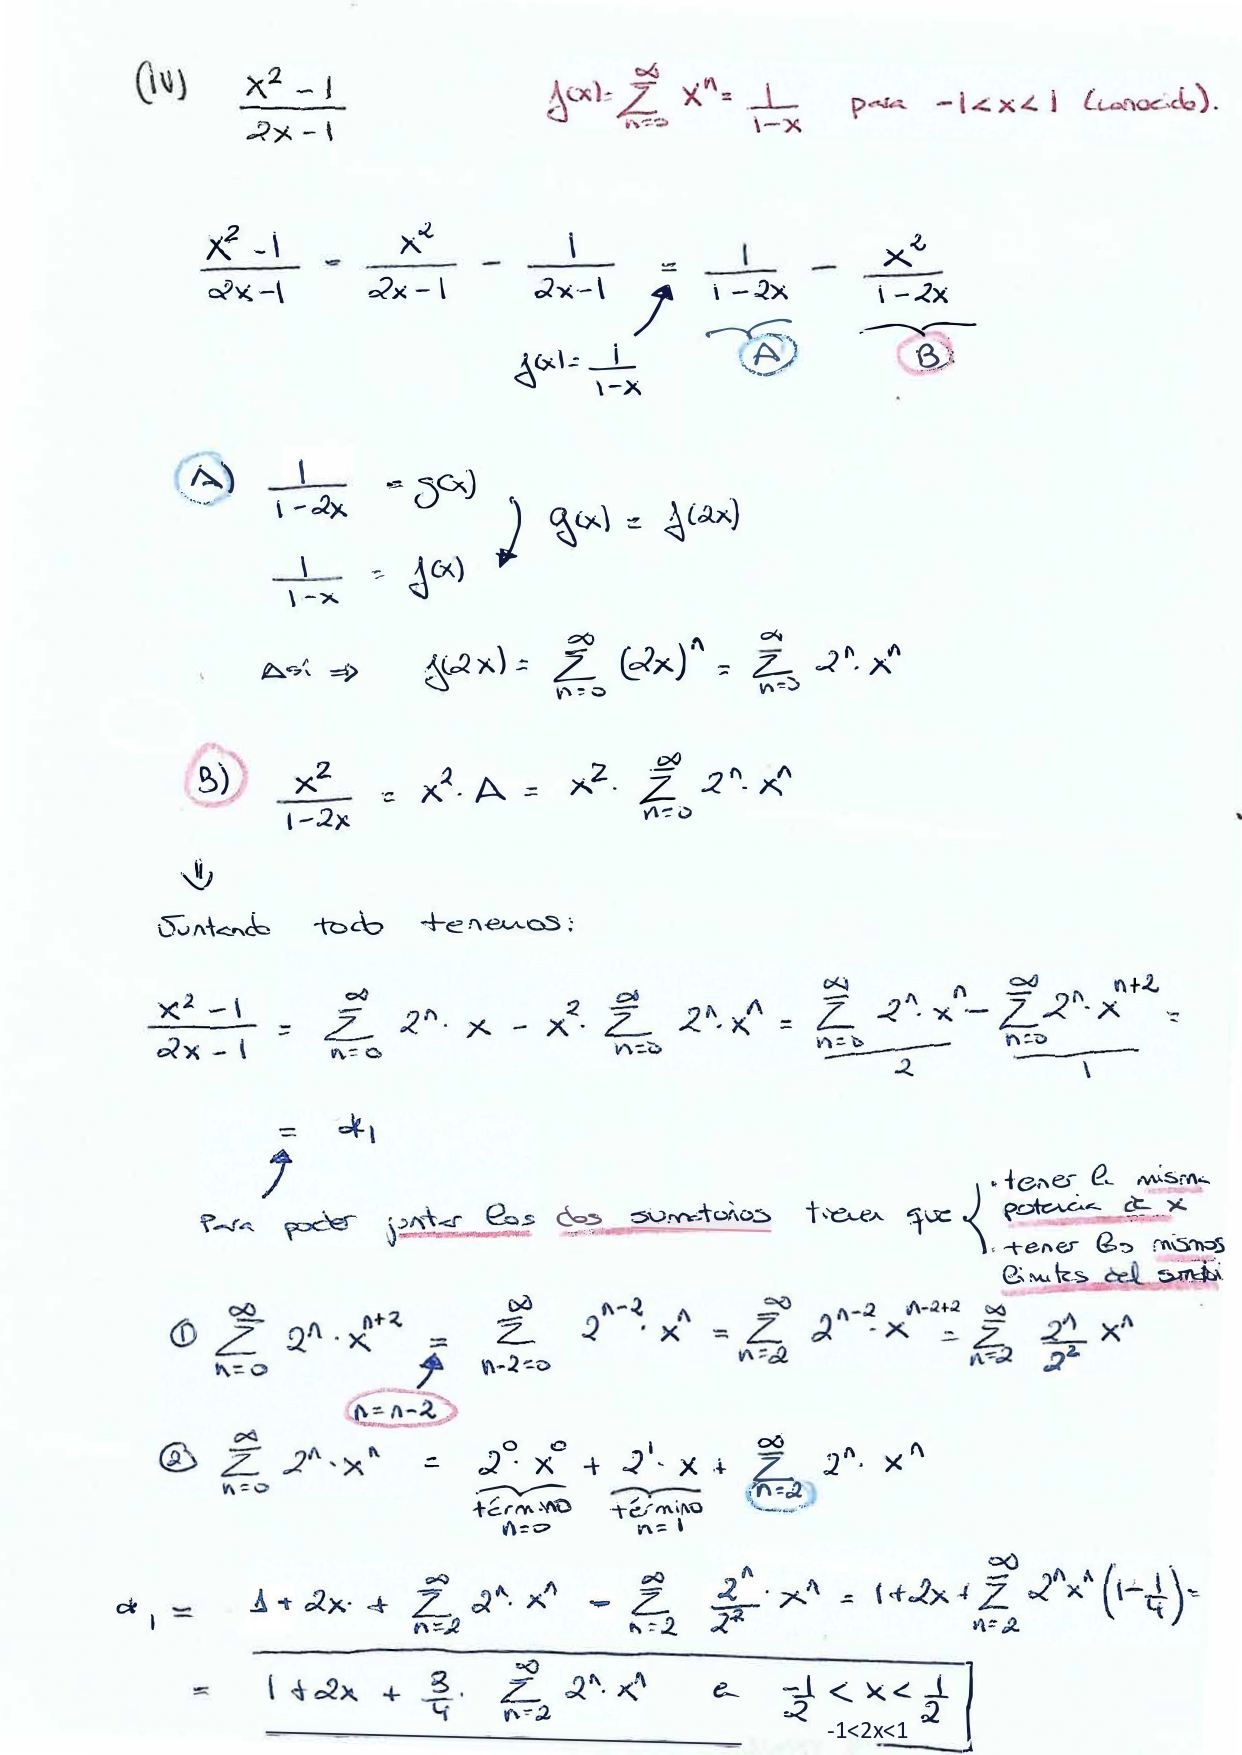 (iv) \frac{x^2-1}{2x-1} f(x)=\sum_{n=0}^{\infty} x^n = \frac{1}{1-x} para -1<x<1 (conocido).
\frac{x^2-1}{2x-1} = \frac{x^2}{2x-1} - \frac{1}{2x-1} = \frac{1}{1-2x} - \frac{x^2}{1-2x}
f(x)=\frac{1}{1-x} A B
A) \frac{1}{1-2x} = g(x)
g(x) = f(2x)
\frac{1}{1-x} = f(x)
Así ⇒ f(2x) = \sum_{n=0}^{\infty} (2x)^n = \sum_{n=0}^{\infty} 2^n · x^n
B) \frac{x^2}{1-2x} = x^2 · A = x^2 · \sum_{n=0}^{\infty} 2^n · x^n
⇓
Juntando todo tenemos:
\frac{x^2-1}{2x-1} = \sum_{n=0}^{\infty} 2^n · x - x^2 · \sum_{n=0}^{\infty} 2^n · x^n = \sum_{n=0}^{\infty} 2^n · x^n - \sum_{n=0}^{\infty} 2^n · x^{n+2} =
2 1
= *_1
Para poder juntar los dos sumatorios tienen que { · tener la misma
potencia de x
· tener los mismos
límites del
① \sum_{n=0}^{\infty} 2^n · x^{n+2} = \sum_{n-2=0}^{\infty} 2^{n-2} · x^n = \sum_{n=2}^{\infty} 2^{n-2} · x^{n-2+2} = \sum_{n=2}^{\infty} \frac{2^n}{2^2} x^n
n=n-2
② \sum_{n=0}^{\infty} 2^n · x^n = 2^0 · x^0 + 2^1 · x + \sum_{n=2}^{\infty} 2^n · x^n
término término
n=0 n=1
*_1 = 1 + 2x + \sum_{n=2}^{\infty} 2^n · x^n - \sum_{n=2}^{\infty} \frac{2^n}{2^2} · x^n = 1+2x+\sum_{n=2}^{\infty} 2^n x^n (1-\frac{1}{4}) =
= 1+2x + \frac{3}{4} · \sum_{n=2}^{\infty} 2^n · x^n e \frac{-1}{2} < x < \frac{1}{2}
-1<2x<1